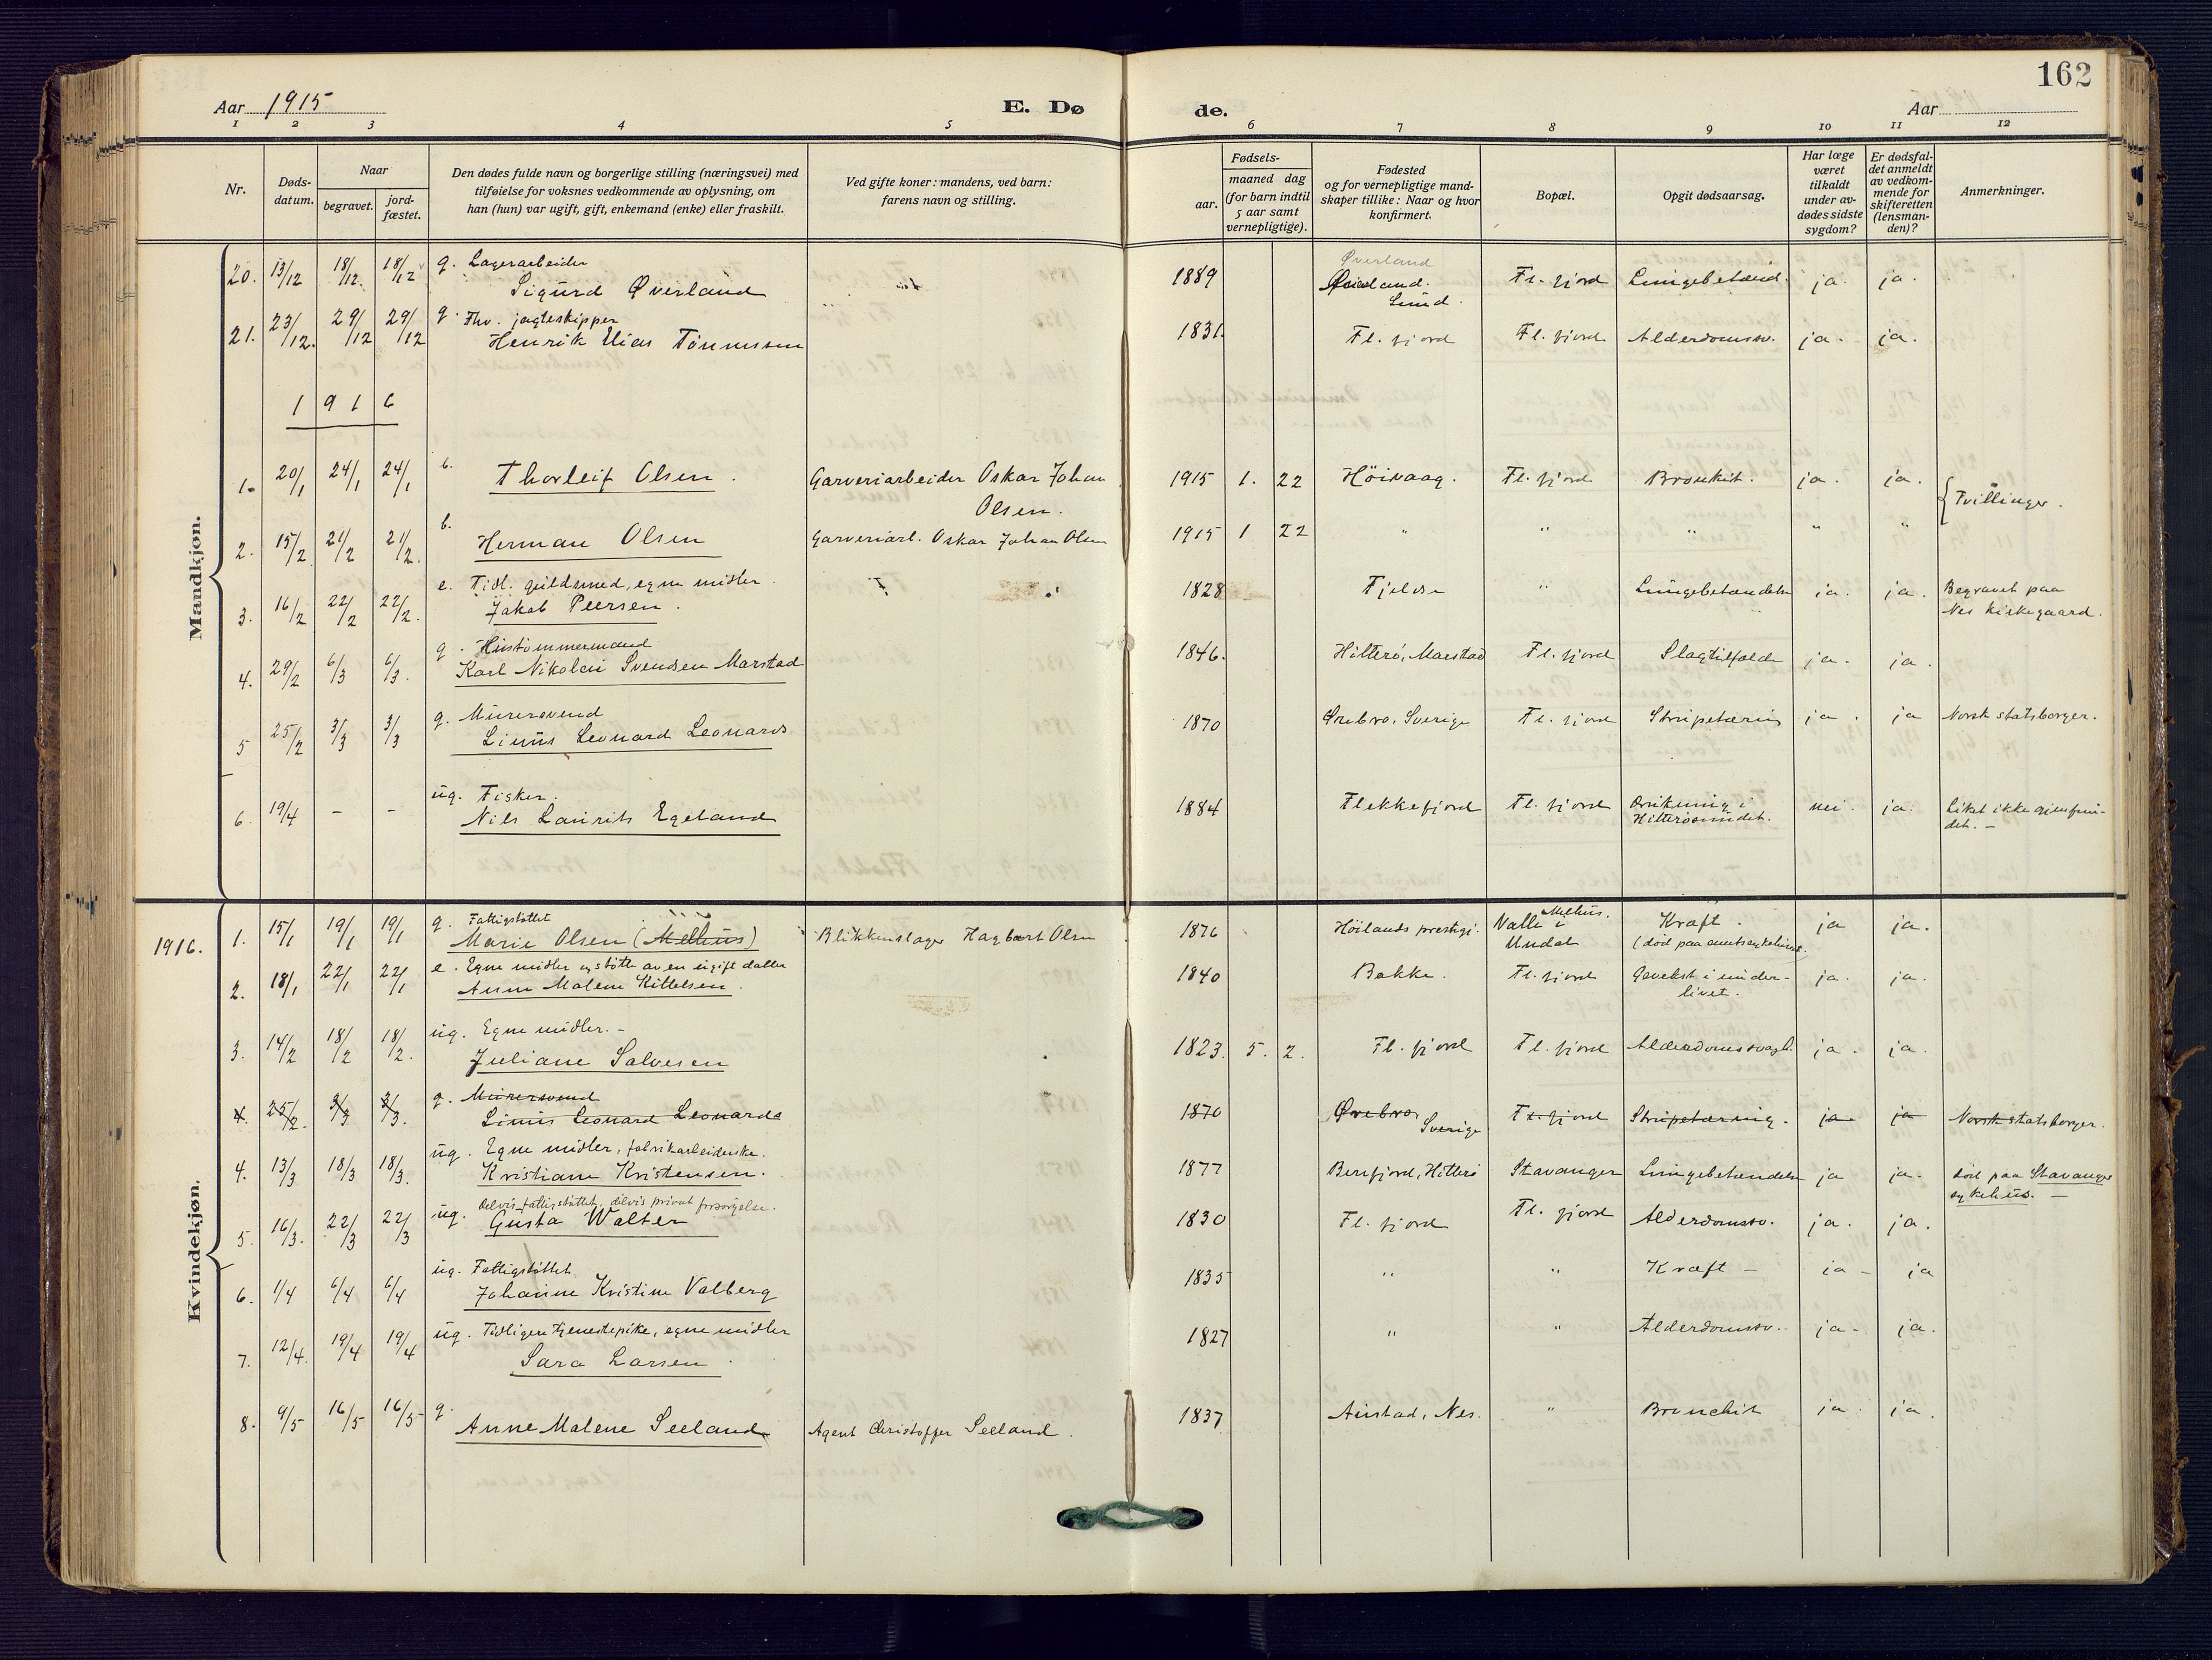 162
Aar 1915
E. Dø
de.
Aar
1 2 3 4 5 6 7 8 9 10 11 12
Nr.
Døds-datum.
Naar
begravet.
jord-fæstet.
Den dødes fulde navn og borgerlige stilling (næringsvei) med
tilføielse for voksnes vedkommende av oplysning, om
han (hun) var ugift, gift, enkemand (enke) eller fraskilt.
Ved gifte koner: mandens, ved barn:
farens navn og stilling.
Fødsels-
aar.
maaned dag
(for barn indtil
5 aar samt
vernepligtige).
Fødested
og for vernepligtige mand-
skaper tillike: Naar og hvor
konfirmert.
Bopæl.
Opgit dødsaarsag.
Har læge
været
tilkaldt
under av-
dødes sidste
sygdom?
Er dødsfal-
det anmeldt
av vedkom-
mende for
skifteretten
(lensman-
den)?
Anmerkninger.
Mandkjøn.
20. 13/12 18/12 18/12 g. Lagerarbeider
Sigurd Øverland 1889 Øverland
Lund. Fl. fjord Lungebetænd. ja. ja.
21. 23/12. 29/12 29/12 g. Fhv. jagteskipper
Henrik Elias Tönnessen 1831. Fl. fjord Fl. fjord Alderdomssv. ja. ja.
1916
1. 20/1 24/1 24/1 b. Thorleif Olsen. Garveriarbeider Oskar Johan
Olsen. 1915 1. 22 Höivaag. Fl. fjord Bronkit. ja. ja. { Tvillinger.
2. 15/2 21/2 21/2. b. Herman Olsen Garveriarb. Oskar Johan Olsen 1915 1 22 " " " " "
3. 16/2 22/2 22/2. e. Tidl. guldsmed, egne midler.
Jakob Peersen. 1828 Fjelde " Lungebetændelse ja. ja. Begravet paa
Nes kirkegaard.
4. 29/2 6/3 6/3. g. Hustømmermand
Karl Nikolai Svendsen Marstad 1846. Hitterö, Marstad Fl. fjord Slagtilfælde ja. ja.
5 25/2 3/3 3/3 g. Murersvend
Linus Leonard Leonards 1870 Ørebro, Sverige Fl. fjord Strupetæring ja. ja Norsk statsborger.
6. 19/4 - - ug. Fisker.
Nils Laurits Egeland 1884 Flekkefjord Fl. fjord Drukning i
Hitterösundet. nei. ja. Liket ikke gjenfun-
det. -
Kvindekjøn.
1916. 1. 15/1 19/1 19/1 g. Fattigstöttet
Marie Olsen (Melhus) Blikkenslager Hagbart Olsen 1876 Höilands prestgj. Valle i Melhus.
Undal Kræft.
(död paa amtssykehuset. ja ja.
2. 18/1 22/1 22/1 e. Egne midler og stötte av en ugift datter
Anne Malene Kittelsen. 1840 Bakke. Fl. fjord Gevekst i under-
livet. ja. ja.
3. 14/2 18/2 18/2. ug. Egne midler. -
Juliane Salvesen 1823. 5. 2. Fl. fjord Fl. fjord Alderdomssvagh. ja. ja.
4. 25/2. 3/3 3/3. g. Murersvend
Linus Leonard Leonards 1870 Ørebro,
Sverige Fl. fjord Strupetæring. ja ja Norsk statsborger.
4. 13/3 18/3 18/3. ug. Egne midler, fabrikarbeiderske.
Kristiane Kristensen. 1877 Berrfjord, Hitterö Stavanger Lungebetændelse ja ja. död paa Stavanger
sykehus. -
5. 16/3. 22/3 22/3 ug. Delvis fattigstöttet, delvis privat forsörgelse.
Gusta Walter 1830 Fl. fjord Fl. fjord Alderdomssv. ja. ja.
6. 1/4 6/4 6/4 ug. Fattigstöttet
Johanne Kristine Valberg 1835 " " Kræft - ja - ja
7. 12/4. 19/4 19/4 ug. Tidligere tjenestepike, egne midler
Sara Larsen. 1827 " " Alderdomssv. ja - ja.
8. 9/5 16/5 16/5 g. Anne Malene Seeland Agent Christoffer Seeland. 1837 Austad, Nes. " Bronchit ja. ja.